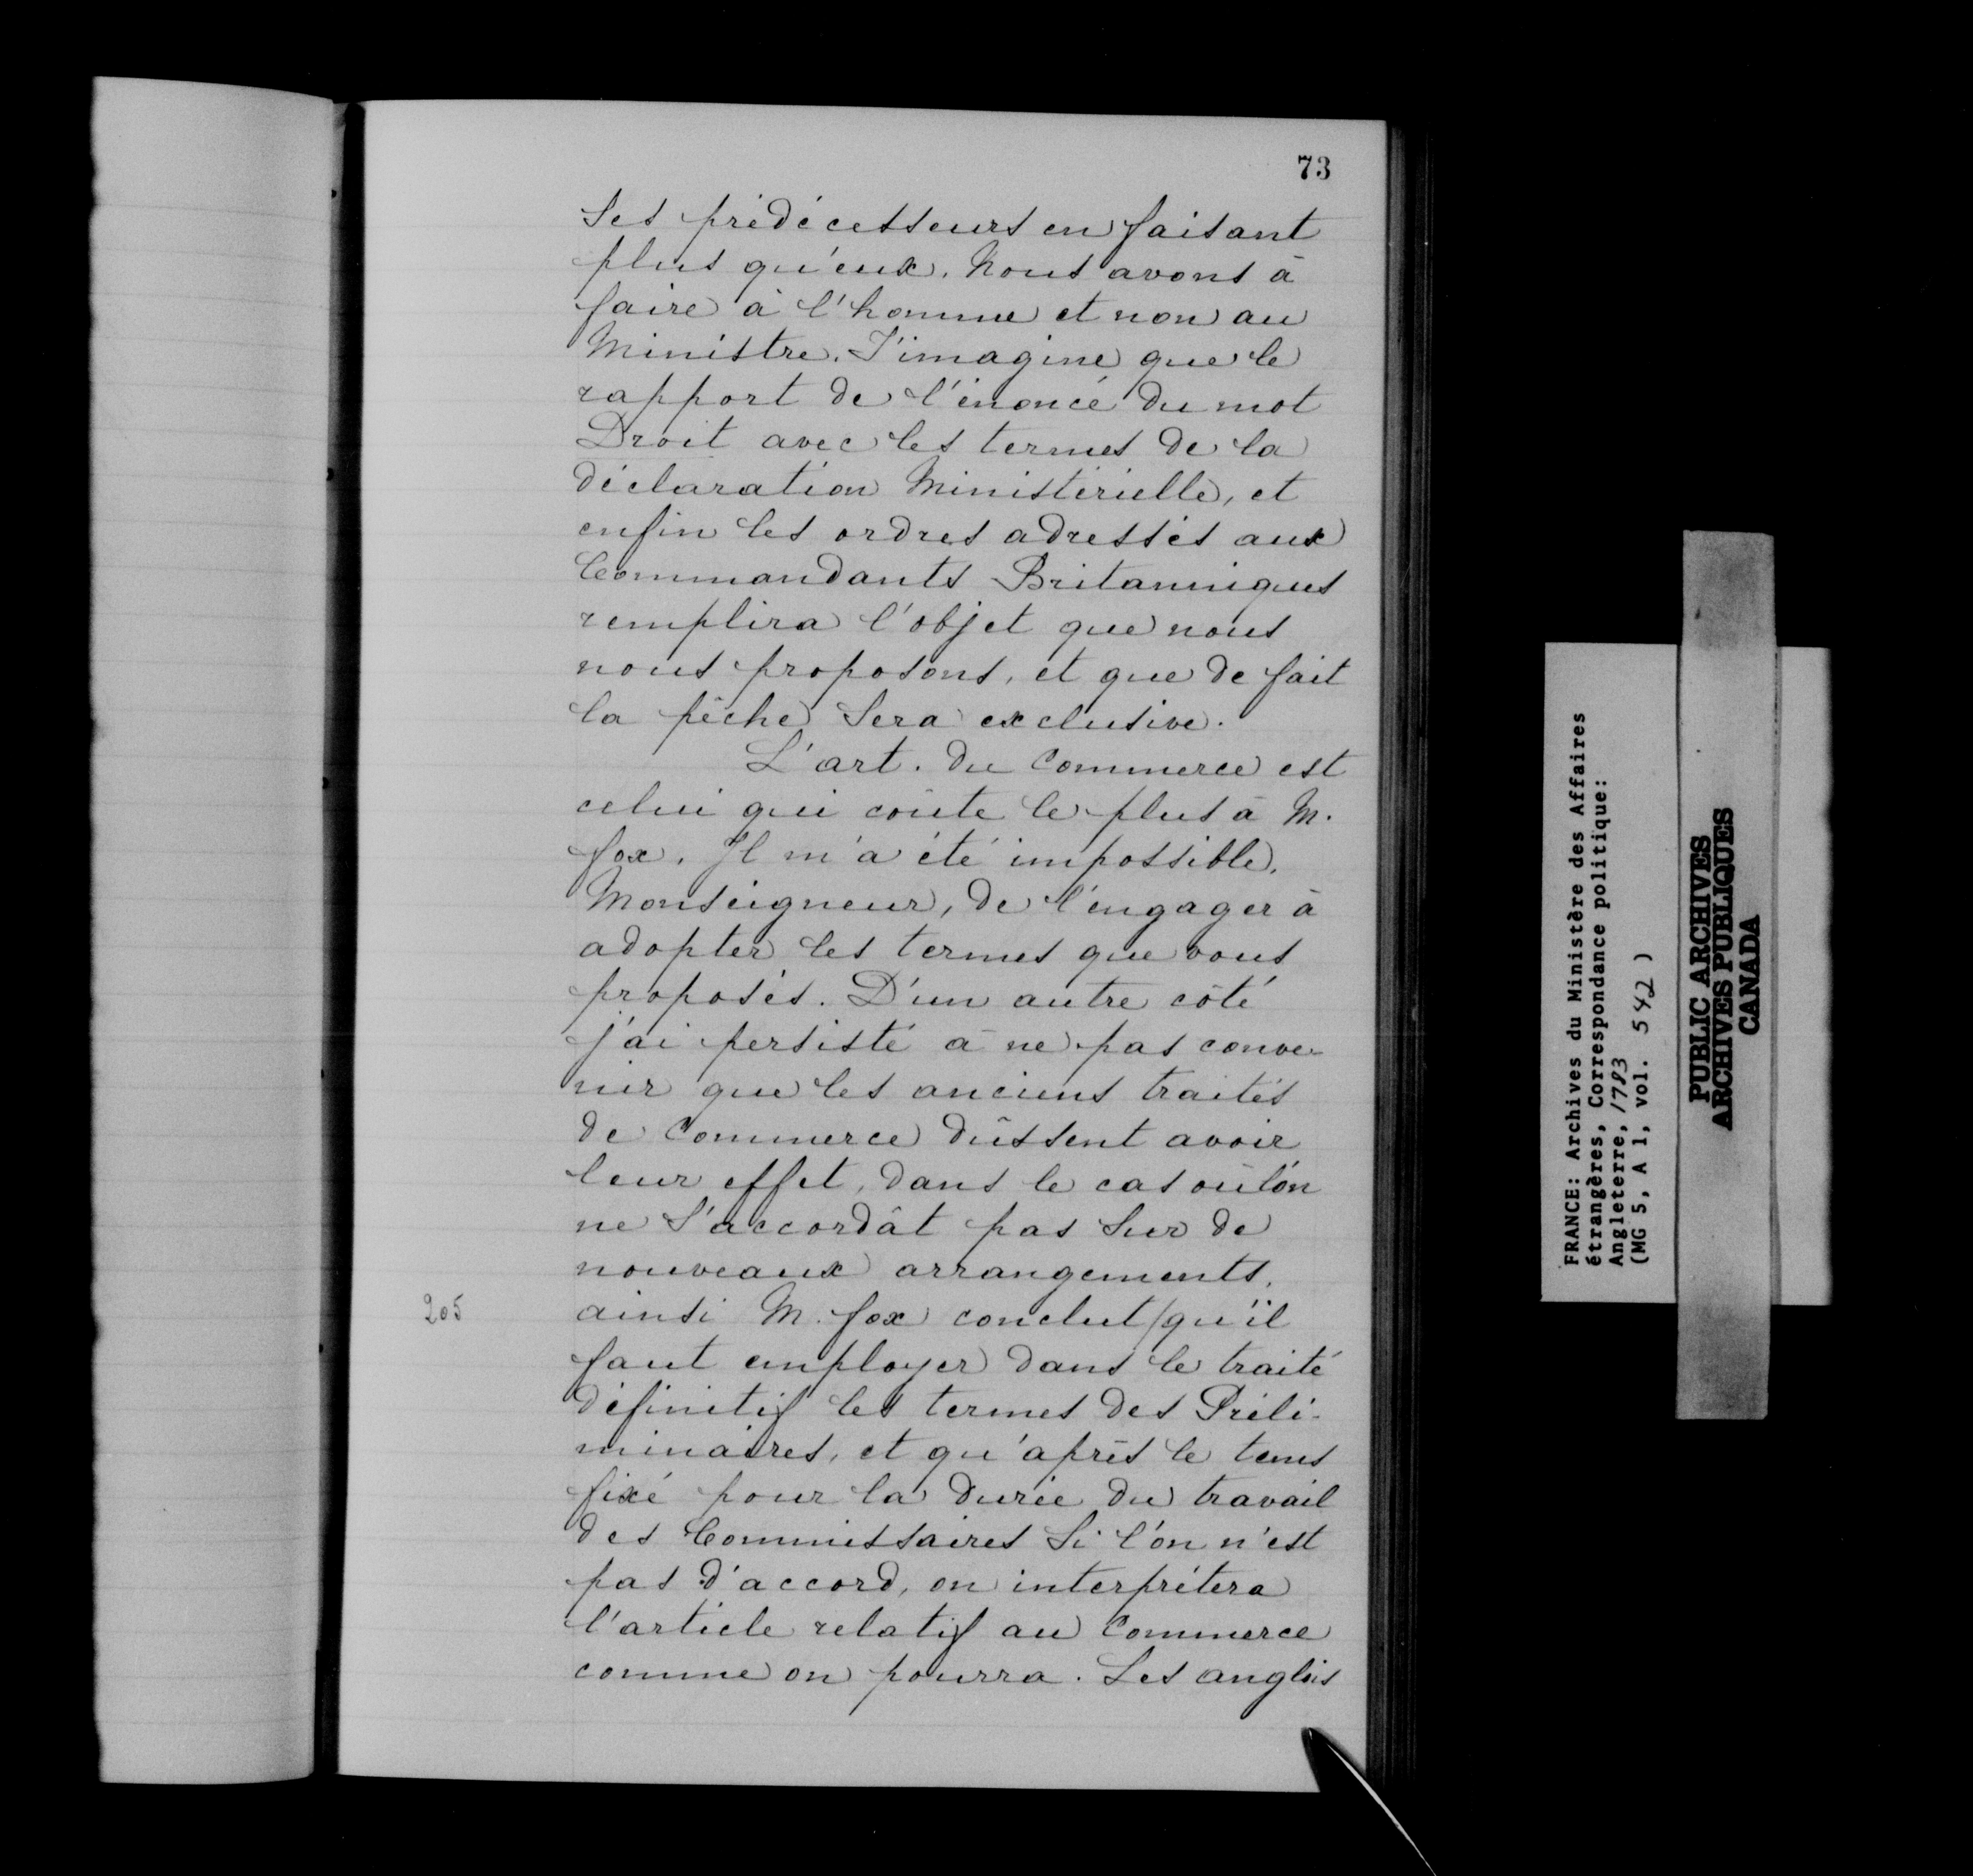 73
Ses prédécesseurs en faisant
plus qu'eux. Nous avons à
faire à l'homme et non au
Ministre. J'imagine que le
rapport de l'énoncé du mot
Droit avec les termes de la
déclaration Ministérielle, et
enfin les ordres adressés aux
Commandants Britanniques
remplira l'objet que nous
nous proposons, et que de fait
la pêche Sera exclusive.
L'art. du Commerce est
celui qui coûte le plus à M.
fox. Il m'a été impossible,
Monseigneur, de l'engager à
adopter les termes que vous
proposés. D'un autre côté
j'ai persisté à ne pas conve-
nir que les anciens traités
de Commerce dûssent avoir
leur effet, dans le cas où l'on
ne S'accordât pas Sur de
nouveaux arrangements.
205
ainsi M. fox conclut/qu'il
faut employer dans le traité
définitif les termes des Préli-
minaires, et qu'après le tems
fixé pour la durée du travail
des Commissaires Si l'on n'est
pas d'accord, on interprétera
l'article relatif au Commerce
comme on pourra. Les anglois
FRANCE: Archives du Ministère des Affaires
étrangères, Correspondance politique:
Angleterre, 1783
(MG 5, A 1, vol. 542 )
PUBLIC ARCHIVES
ARCHIVES PUBLIQUES
CANADA